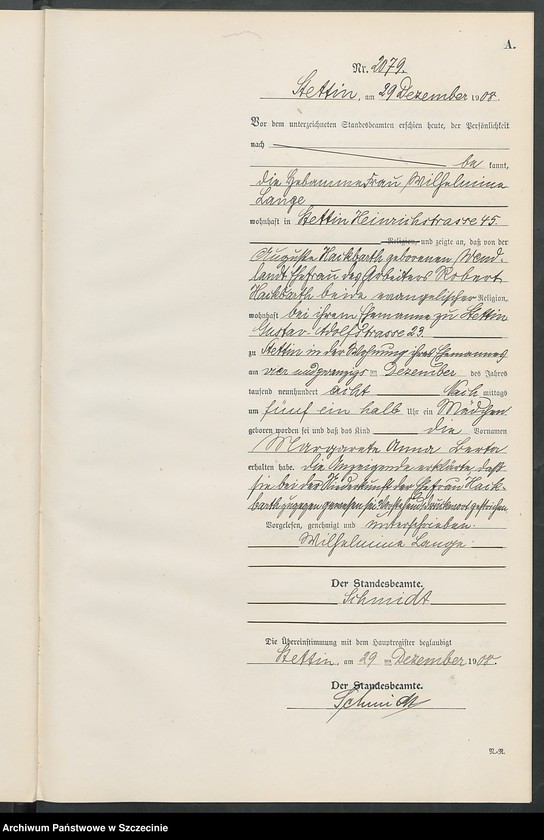 A.
Nr. 2079.
Stettin, am 29 Dezember 1908.
Vor dem unterzeichneten Standesbeamten erschien heute, der Persönlichkeit
nach
be kannt,
die Hebamme Frau Wilhelmine
Lange
wohnhaft in Stettin Heinrichstrasse 45.
Religion, und zeigte an, daß von der
Auguste Hackbarth geborenen Wend-
landt Ehefrau des Arbeiters Robert
Hackbarth beide evangelischer Religion,
wohnhaft bei ihrem Ehemanne zu Stettin
Gustav-Adolfstrasse 23
zu Stettin in der Wohnung ihres Ehemannes
am vier und zwanzigs ten Dezember des Jahres
tausend neunhundert acht Nach mittags
um fünf ein halb Uhr ein Mädchen
geboren worden sei und daß das Kind die Vornamen
Margarete Anna Berta
erhalten habe. Die Anzeigende erklärte, daß
sie bei der Niederkunft der Ehefrau Hack-
barth zugegen gewesen sei. Vorstehend 1 Druckwort gestrichen.
Vorgelesen, genehmigt und unterschrieben.
Wilhelmine Lange.
Der Standesbeamte.
Schmidt
Die Übereinstimmung mit dem Hauptregister beglaubigt
Stettin, am 29 ten Dezember 1908.
Der Standesbeamte.
Schmidt
N.-R.
Archiwum Państwowe w Szczecinie